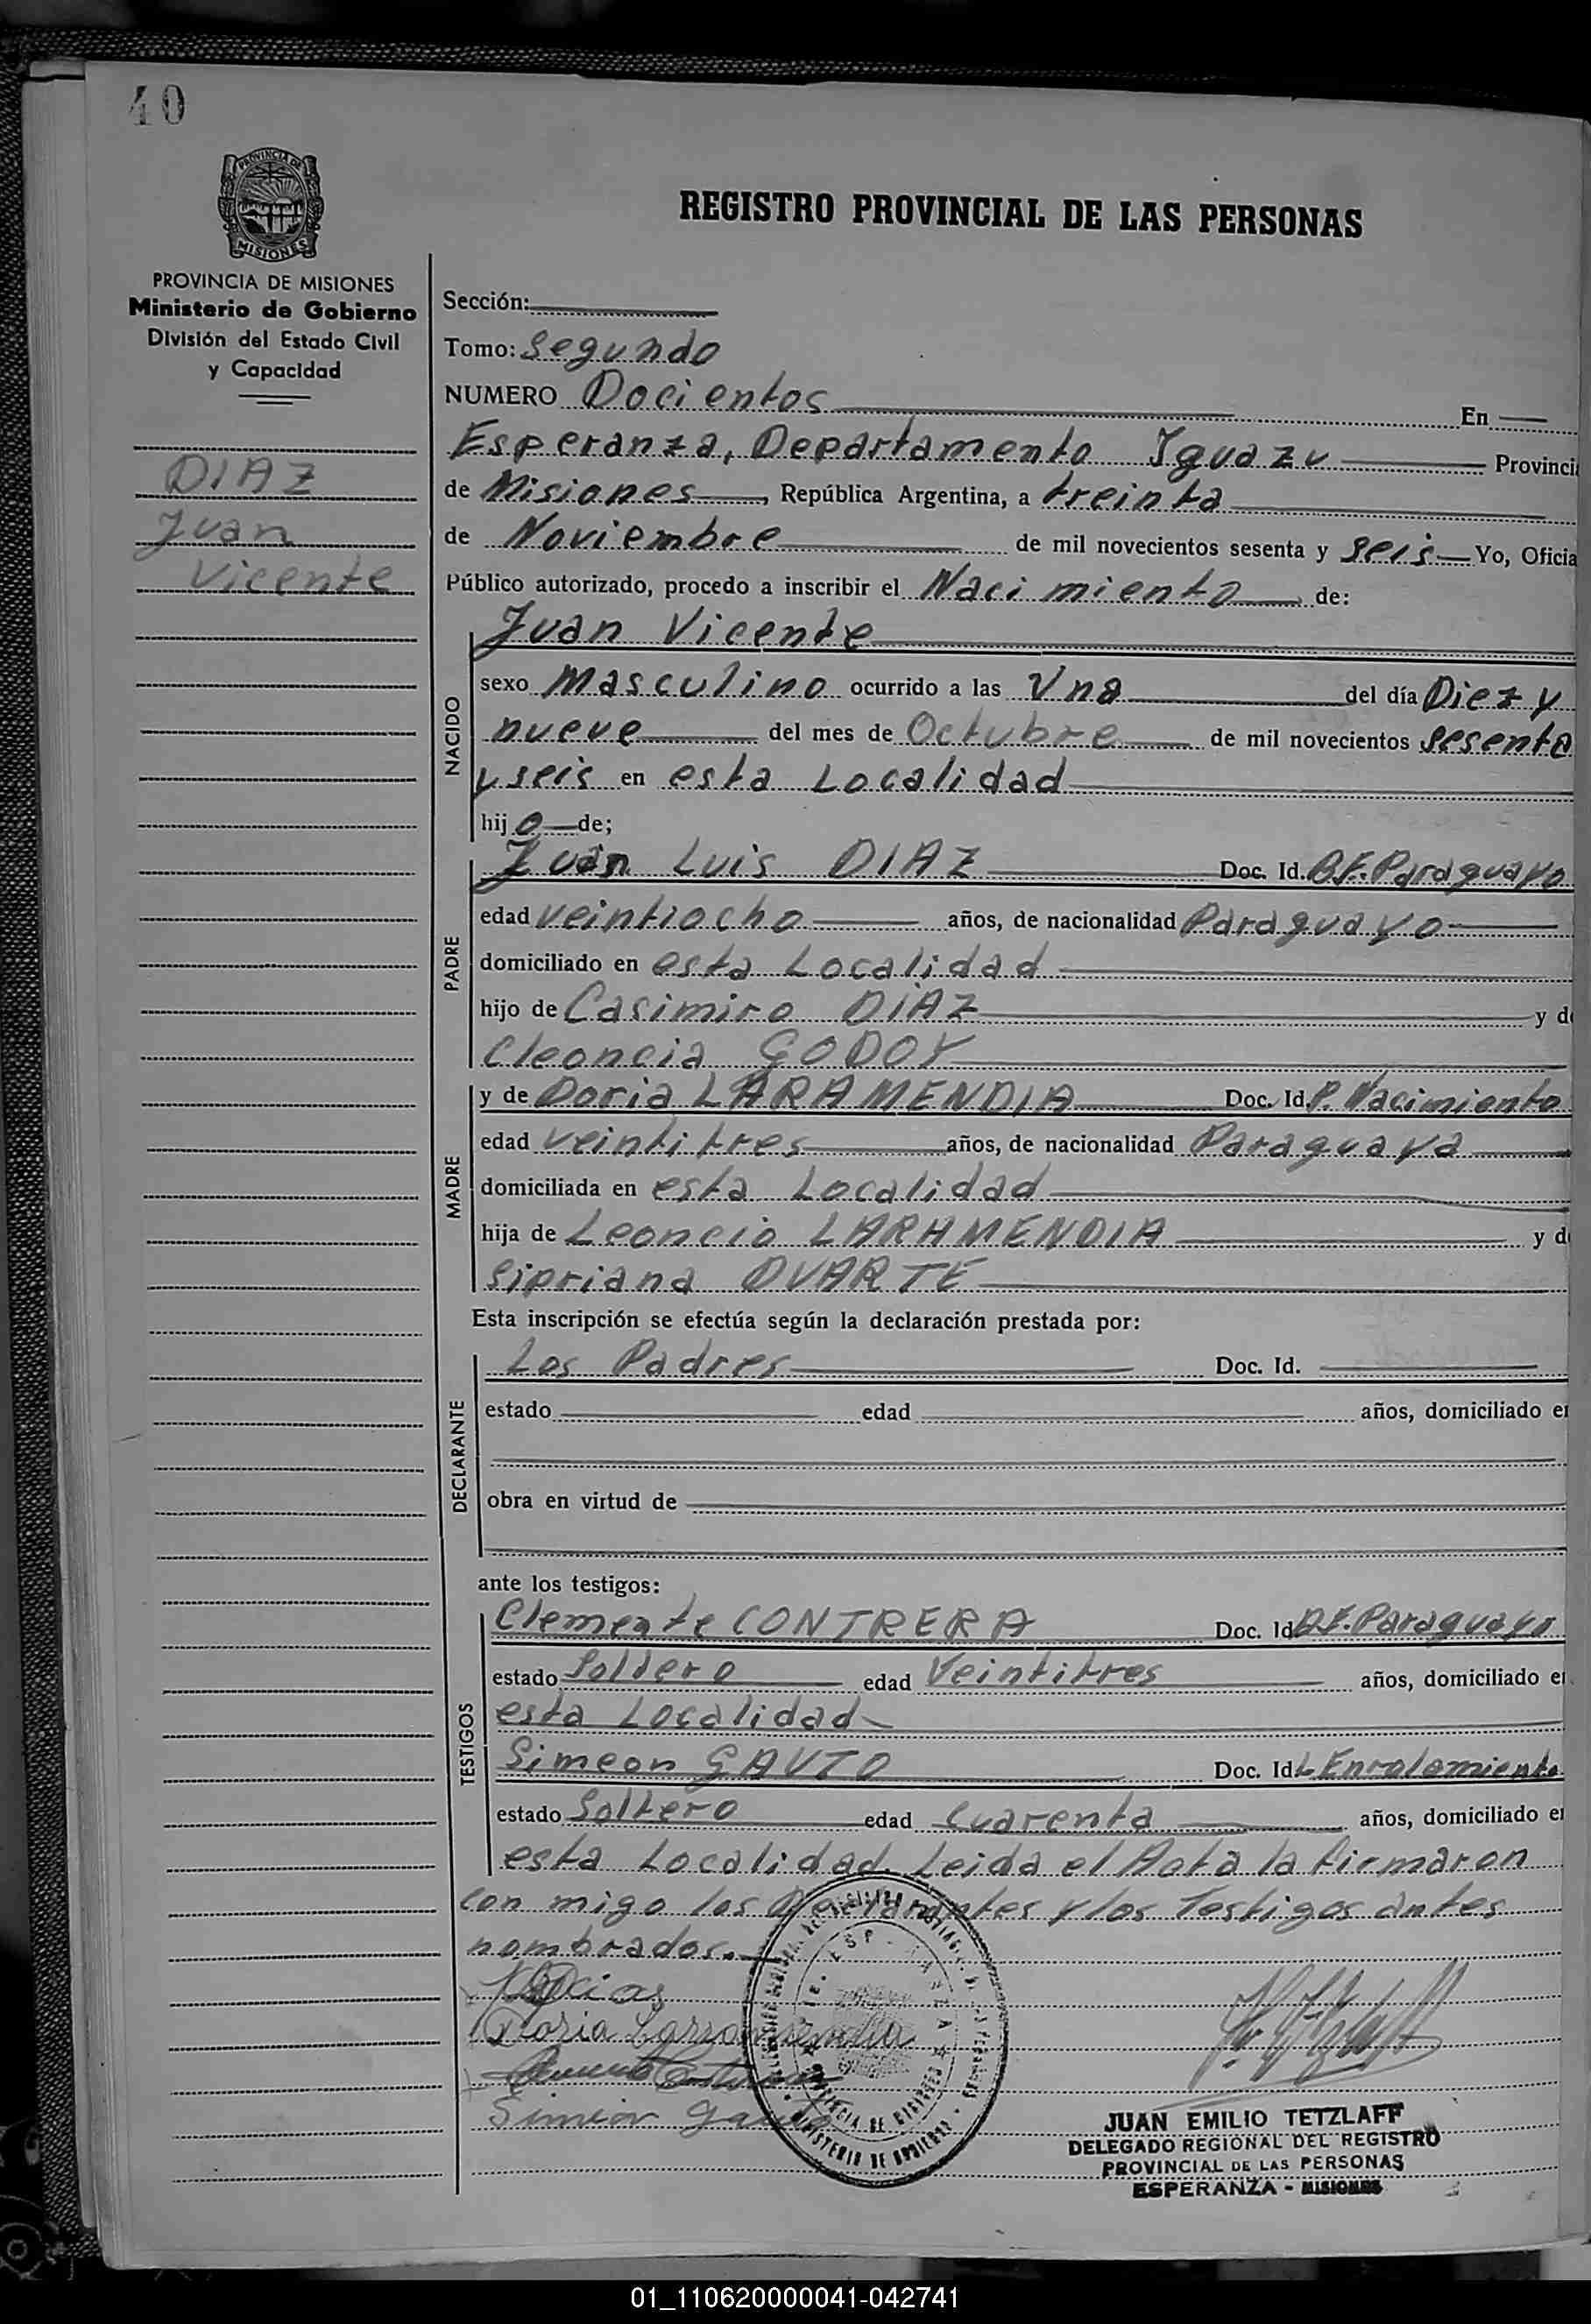 40
PROVINCIA DE
MISIONES
PROVINCIA DE MISIONES
Ministerio de Gobierno
División del Estado Civil
y Capacidad
DIAZ
Juan
Vicente
REGISTRO PROVINCIAL DE LAS PERSONAS
Sección:
Tomo: Segundo
NUMERO Docientos En
Esperanza, Departamento Iguazu Provinci
de Misiones, República Argentina, a treinta
de Noviembre de mil novecientos sesenta y seis Yo, Oficia
Público autorizado, procedo a inscribir el Nacimiento de:
NACIDO
Juan Vicente
sexo Masculino ocurrido a las Una del día Diez y
nueve del mes de Octubre de mil novecientos sesenta
y seis en esta Localidad
hijo de;
PADRE
Juan Luis DIAZ Doc. Id. B.F. Paraguayo
edad veintiocho años, de nacionalidad Paraguayo
domiciliado en esta Localidad
hijo de Casimiro DIAZ y d
Cleoncia GODOY
MADRE
y de Doria LARAMENDIA Doc. Id. P. Nacimiento
edad veintitres años, de nacionalidad Paraguaya
domiciliada en esta Localidad
hija de Leoncio LARAMENDIA y d
Sipriana DUARTE
Esta inscripción se efectúa según la declaración prestada por:
DECLARANTE
Los Padres Doc. Id.
estado edad años, domiciliado e
obra en virtud de
ante los testigos:
TESTIGOS
Clemente CONTRERA Doc. Id Paraguayo
estado Soldero edad Veintitres años, domiciliado e
esta Localidad
Simeon GAUTO Doc. Id L Enrolamiento
estado Soltero edad Cuarenta años, domiciliado e
esta Localidad. Leida el Acta la firmaron
con migo los Declarantes y los Testigos antes
nombrados.
Doria
Simeon Gauto
PROVINCIA DE MISIONES
MINISTERIO DE GOBIERNO
JUAN EMILIO TETZLAFF
DELEGADO REGIONAL DEL REGISTRO
PROVINCIAL DE LAS PERSONAS
ESPERANZA - MISIONES
01_110620000041-042741